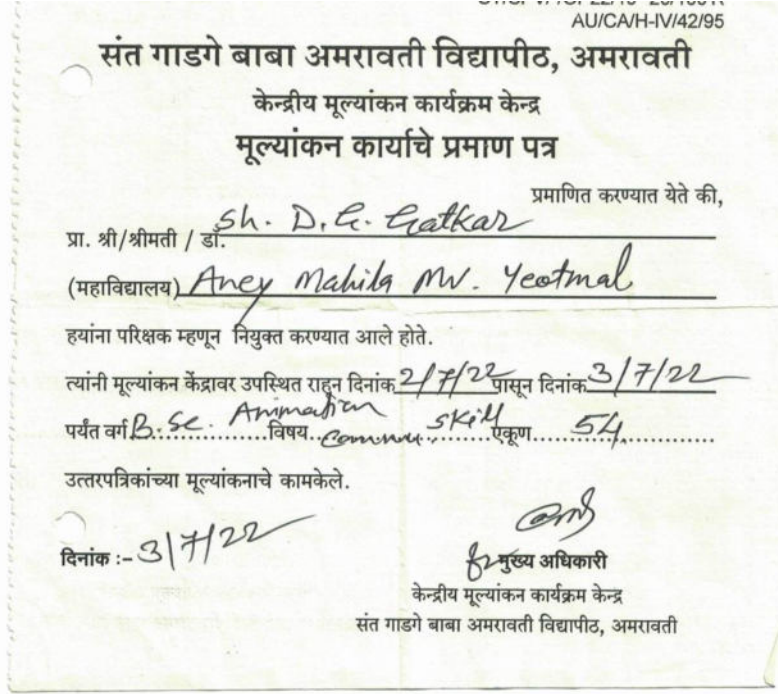 AU/CA/H-IV/42/95
संत गाडगे बाबा अमरावती विद्यापीठ, अमरावती
केन्द्रीय मूल्यांकन कार्यक्रम केन्द्र
मूल्यांकन कार्याचे प्रमाण पत्र
प्रमाणित करण्यात येते की,
प्रा. श्री/श्रीमती / डॉ. Sh. D. G. Gatkar
(महाविद्यालय) Aney Mahila Mv. Yeotmal
हयांना परिक्षक म्हणून नियुक्त करण्यात आले होते.
त्यांनी मूल्यांकन केंद्रावर उपस्थित राहून दिनांक 2/7/22 पासून दिनांक 3/7/22
पर्यंत वर्ग B.Sc. Animation विषय Commu. Skill एकूण 54
उत्तरपत्रिकांच्या मूल्यांकनाचे कामकेले.
दिनांक :- 3/7/22
मुख्य अधिकारी
केन्द्रीय मूल्यांकन कार्यक्रम केन्द्र
संत गाडगे बाबा अमरावती विद्यापीठ, अमरावती